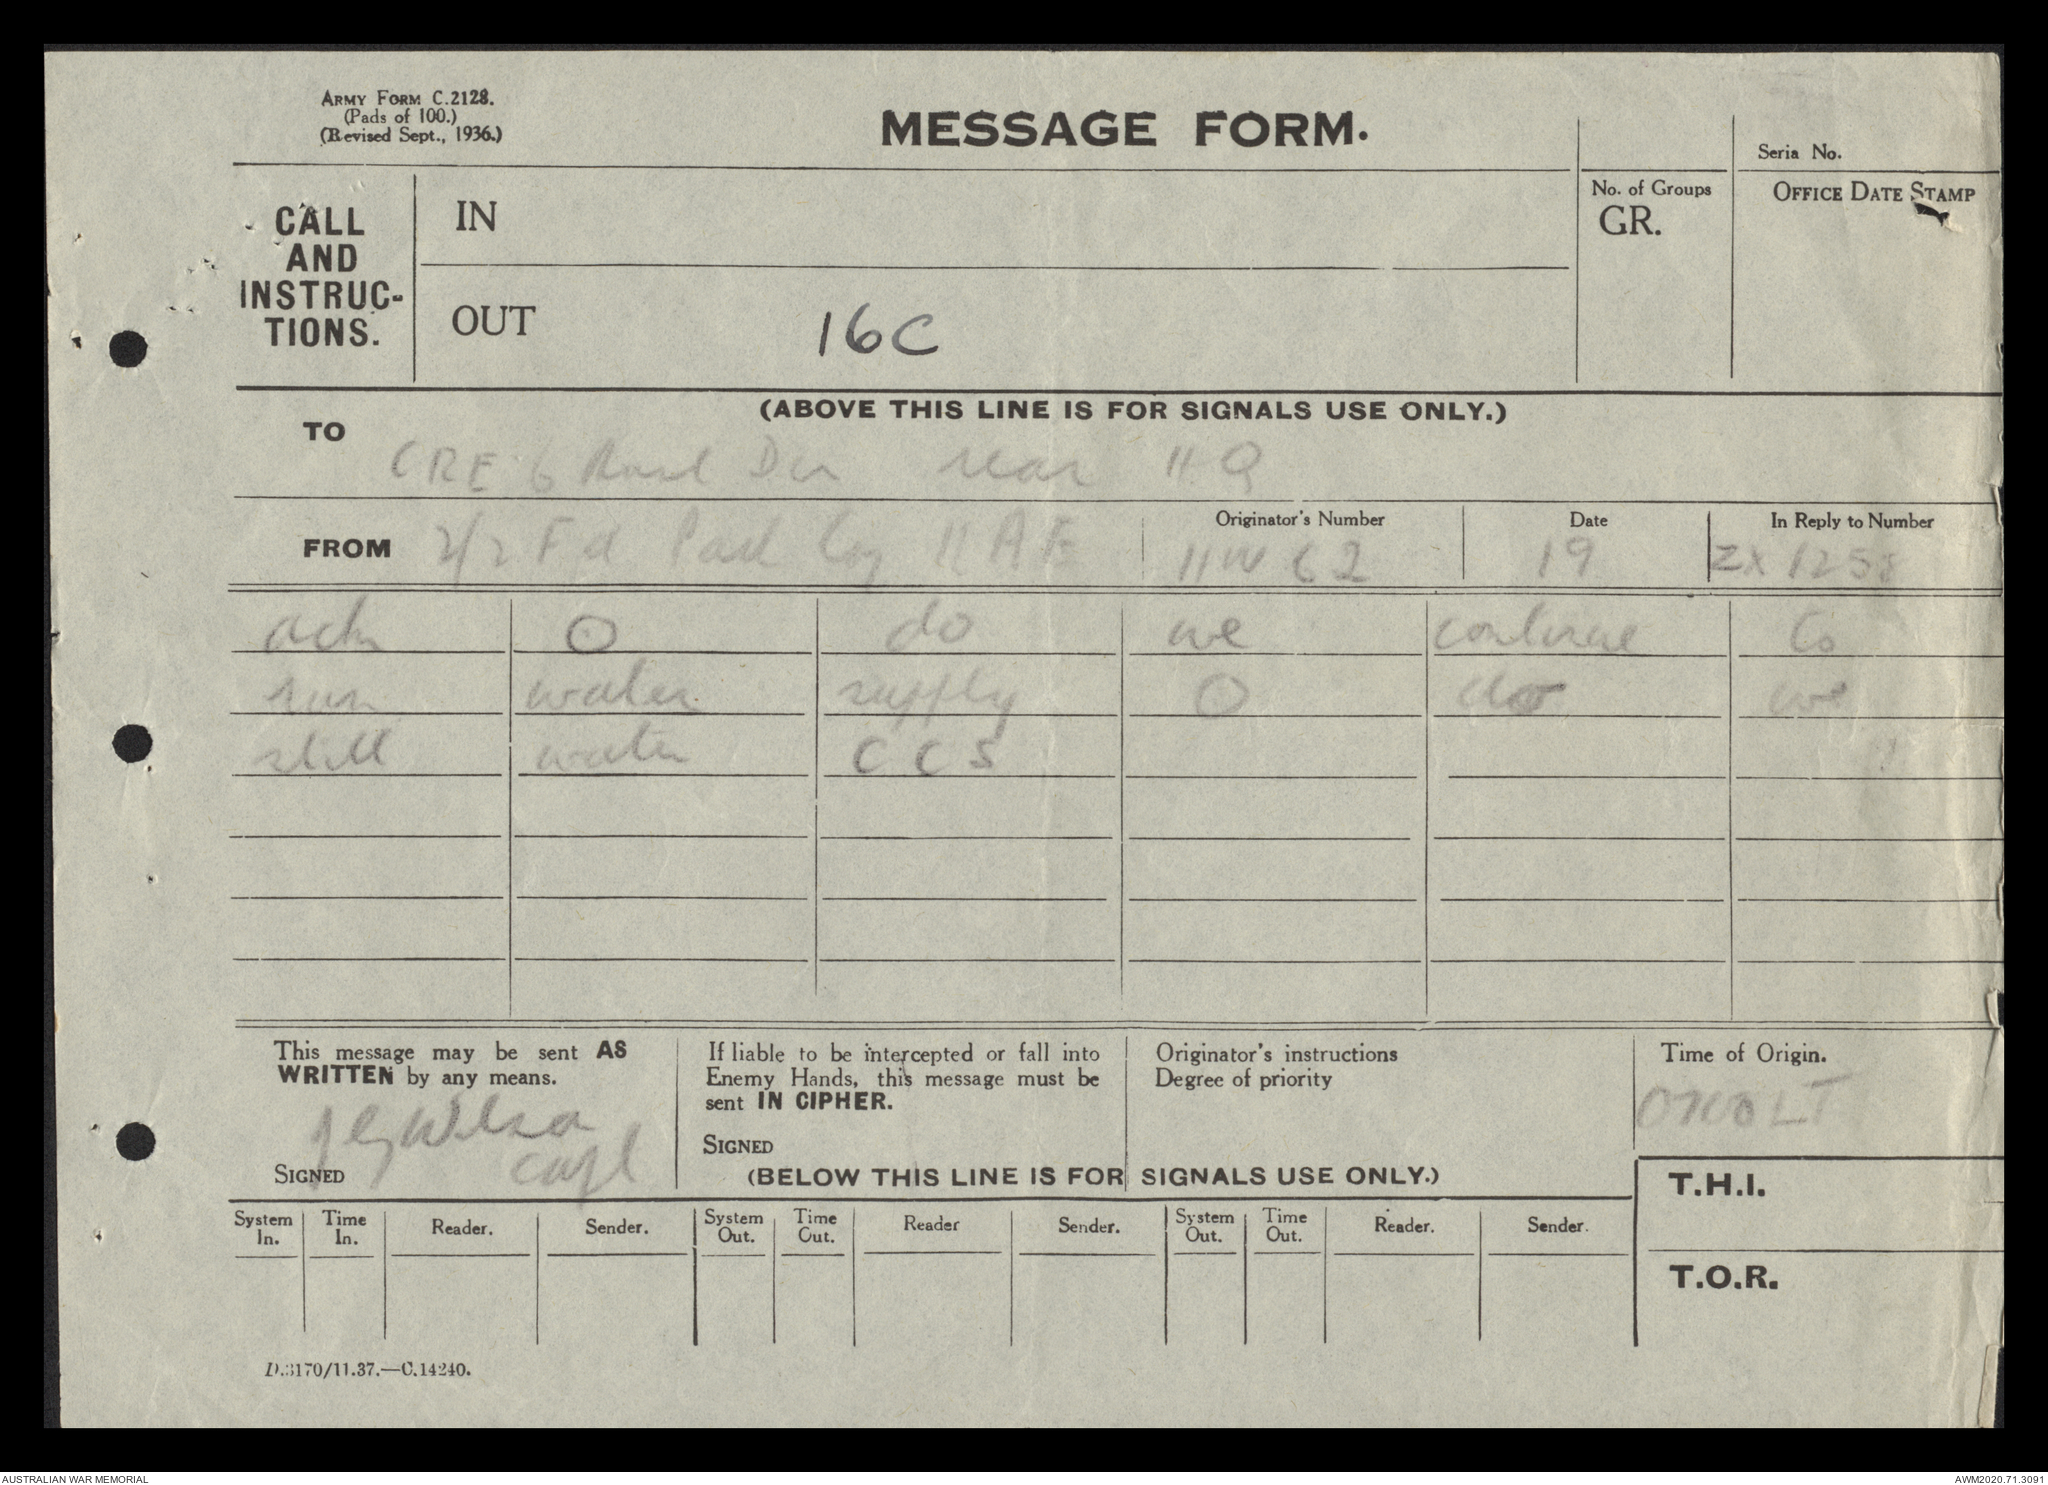 ARMY FORM C.2128.
(Pads of 100.)
(Revised Sept., 1936.)
MESSAGE FORM.
Seria No.
CALL AND INSTRUC-TIONS.
IN
No. of Groups
GR.
OFFICE DATE STAMP
OUT
16C
(ABOVE THIS LINE IS FOR SIGNALS USE ONLY.)
TO
CRE 6 Div rear HQ
FROM 2/2 Fd Park Coy RAE
Originator's Number
HW 62
Date
19
In Reply to Number
ZX 1258
ack O do we continue to
run water supply O do we
still water CCS
This message may be sent AS
WRITTEN by any means.
If liable to be intercepted or fall into
Enemy Hands, this message must be
sent IN CIPHER.
Originator's instructions
Degree of priority
Time of Origin.
0700 LT
Wilson
Capt
SIGNED
SIGNED
(BELOW THIS LINE IS FOR SIGNALS USE ONLY.)
T.H.I.
System In. Time In. Reader. Sender. System Out. Time Out. Reader Sender. System Out. Time Out. Reader. Sender.
T.O.R.
D.3170/11.37.—C.14240.
AUSTRALIAN WAR MEMORIAL
AWM2020.71.3091